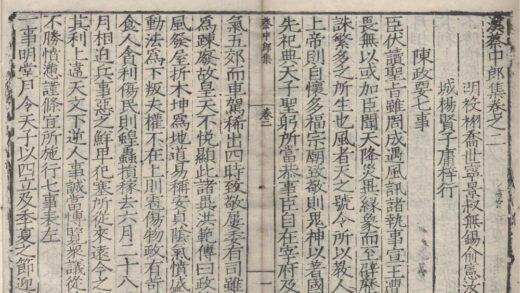 漢蔡中郎集卷之二
明 棚喬世寧景叔無錫俞憲汝
城楊賢子庸梓行
陳政要七事
臣伏讀聖旨雖周成遇風訊諸執事宣王遭
畏無以或加臣聞天降災無緣象而至辟歷
誅繁多之所生也風者天之號令所以教人
上帝則自懷多福宗廟致敬則鬼神以著國
先祀典天子聖躬所當恭事臣自在宰府及
蔡中郎集 卷二 一
氣五郊而車駕稀出四時致敬屢委有司雖
為疎廢故皇天不悅顯此諸異洪範傳曰政
風發屋折木坤為地道易稱安貞陰氣憤盛
動法為下叛夫權不在上則雹傷物政有苛
食人貪利傷民則蝗蟲損稼去六月二十八
月相迫兵事惡之鮮卑犯塞所從來遠今之
其利上違天文下逆人事誠當博覽衆議從
不勝憤懣謹條宜所施行七事表左
一事明堂月令天子以四立及季夏之節迎